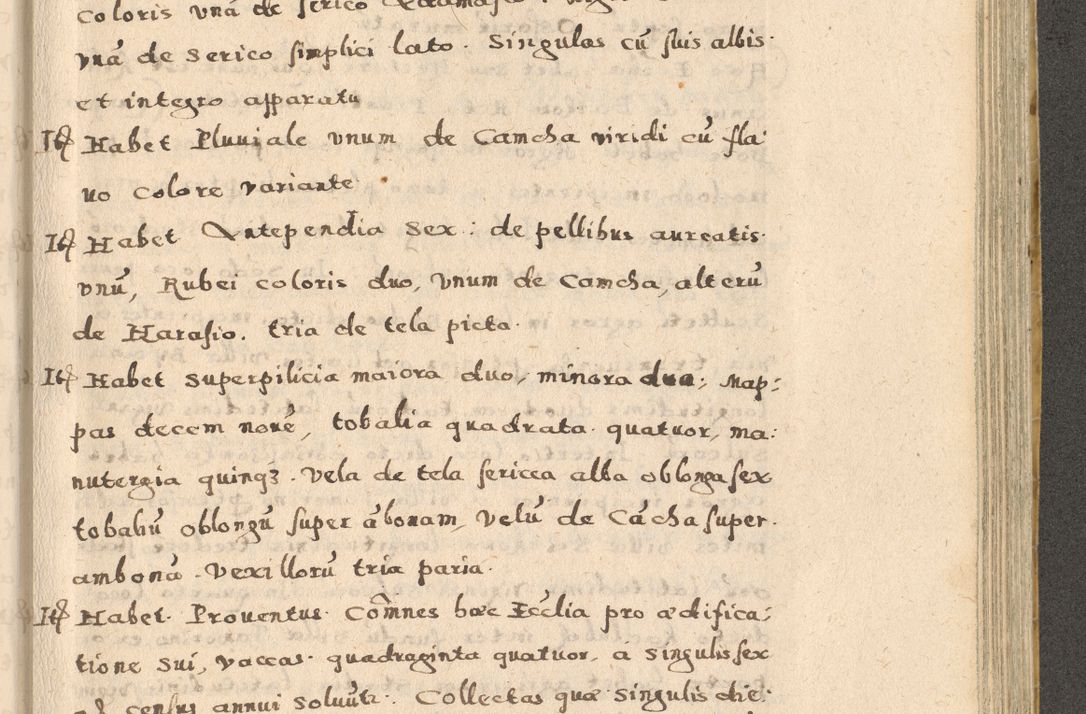 Coloris vná de serico
vná de Serico simplici lato. Singulas cũ suis albis.
et integro apparatu
Itē Habet Pluuiale vnum de Camcha viridi cũ fla:
uo colore variante.
Itē Habet Antependia Sex: de pellibus aureatis.
vnũ, Rubei coloris duo, vnum de Camcha, alterũ
de Harasio. tria de tela picta.
Itē Habet Superpilicia maiora duo, minora duo; Map:
pas decem nouē, tobalia quadrata quatuor, ma:
nutergia quinqȝ. Vela de tela sericea alba oblonga sex
tobaliũ oblongũ super ábonam, Velũ de Cáchasuper.
ambonã. Vexillorũ tria paria.
Itē Habet. Prouentus. Cõmnes hæc Ecclia pro ædifica:
tione sui, vaccas. quadraginta quatuor, a singulis sex
census annui soluũt. Collectas quæ singulis die: